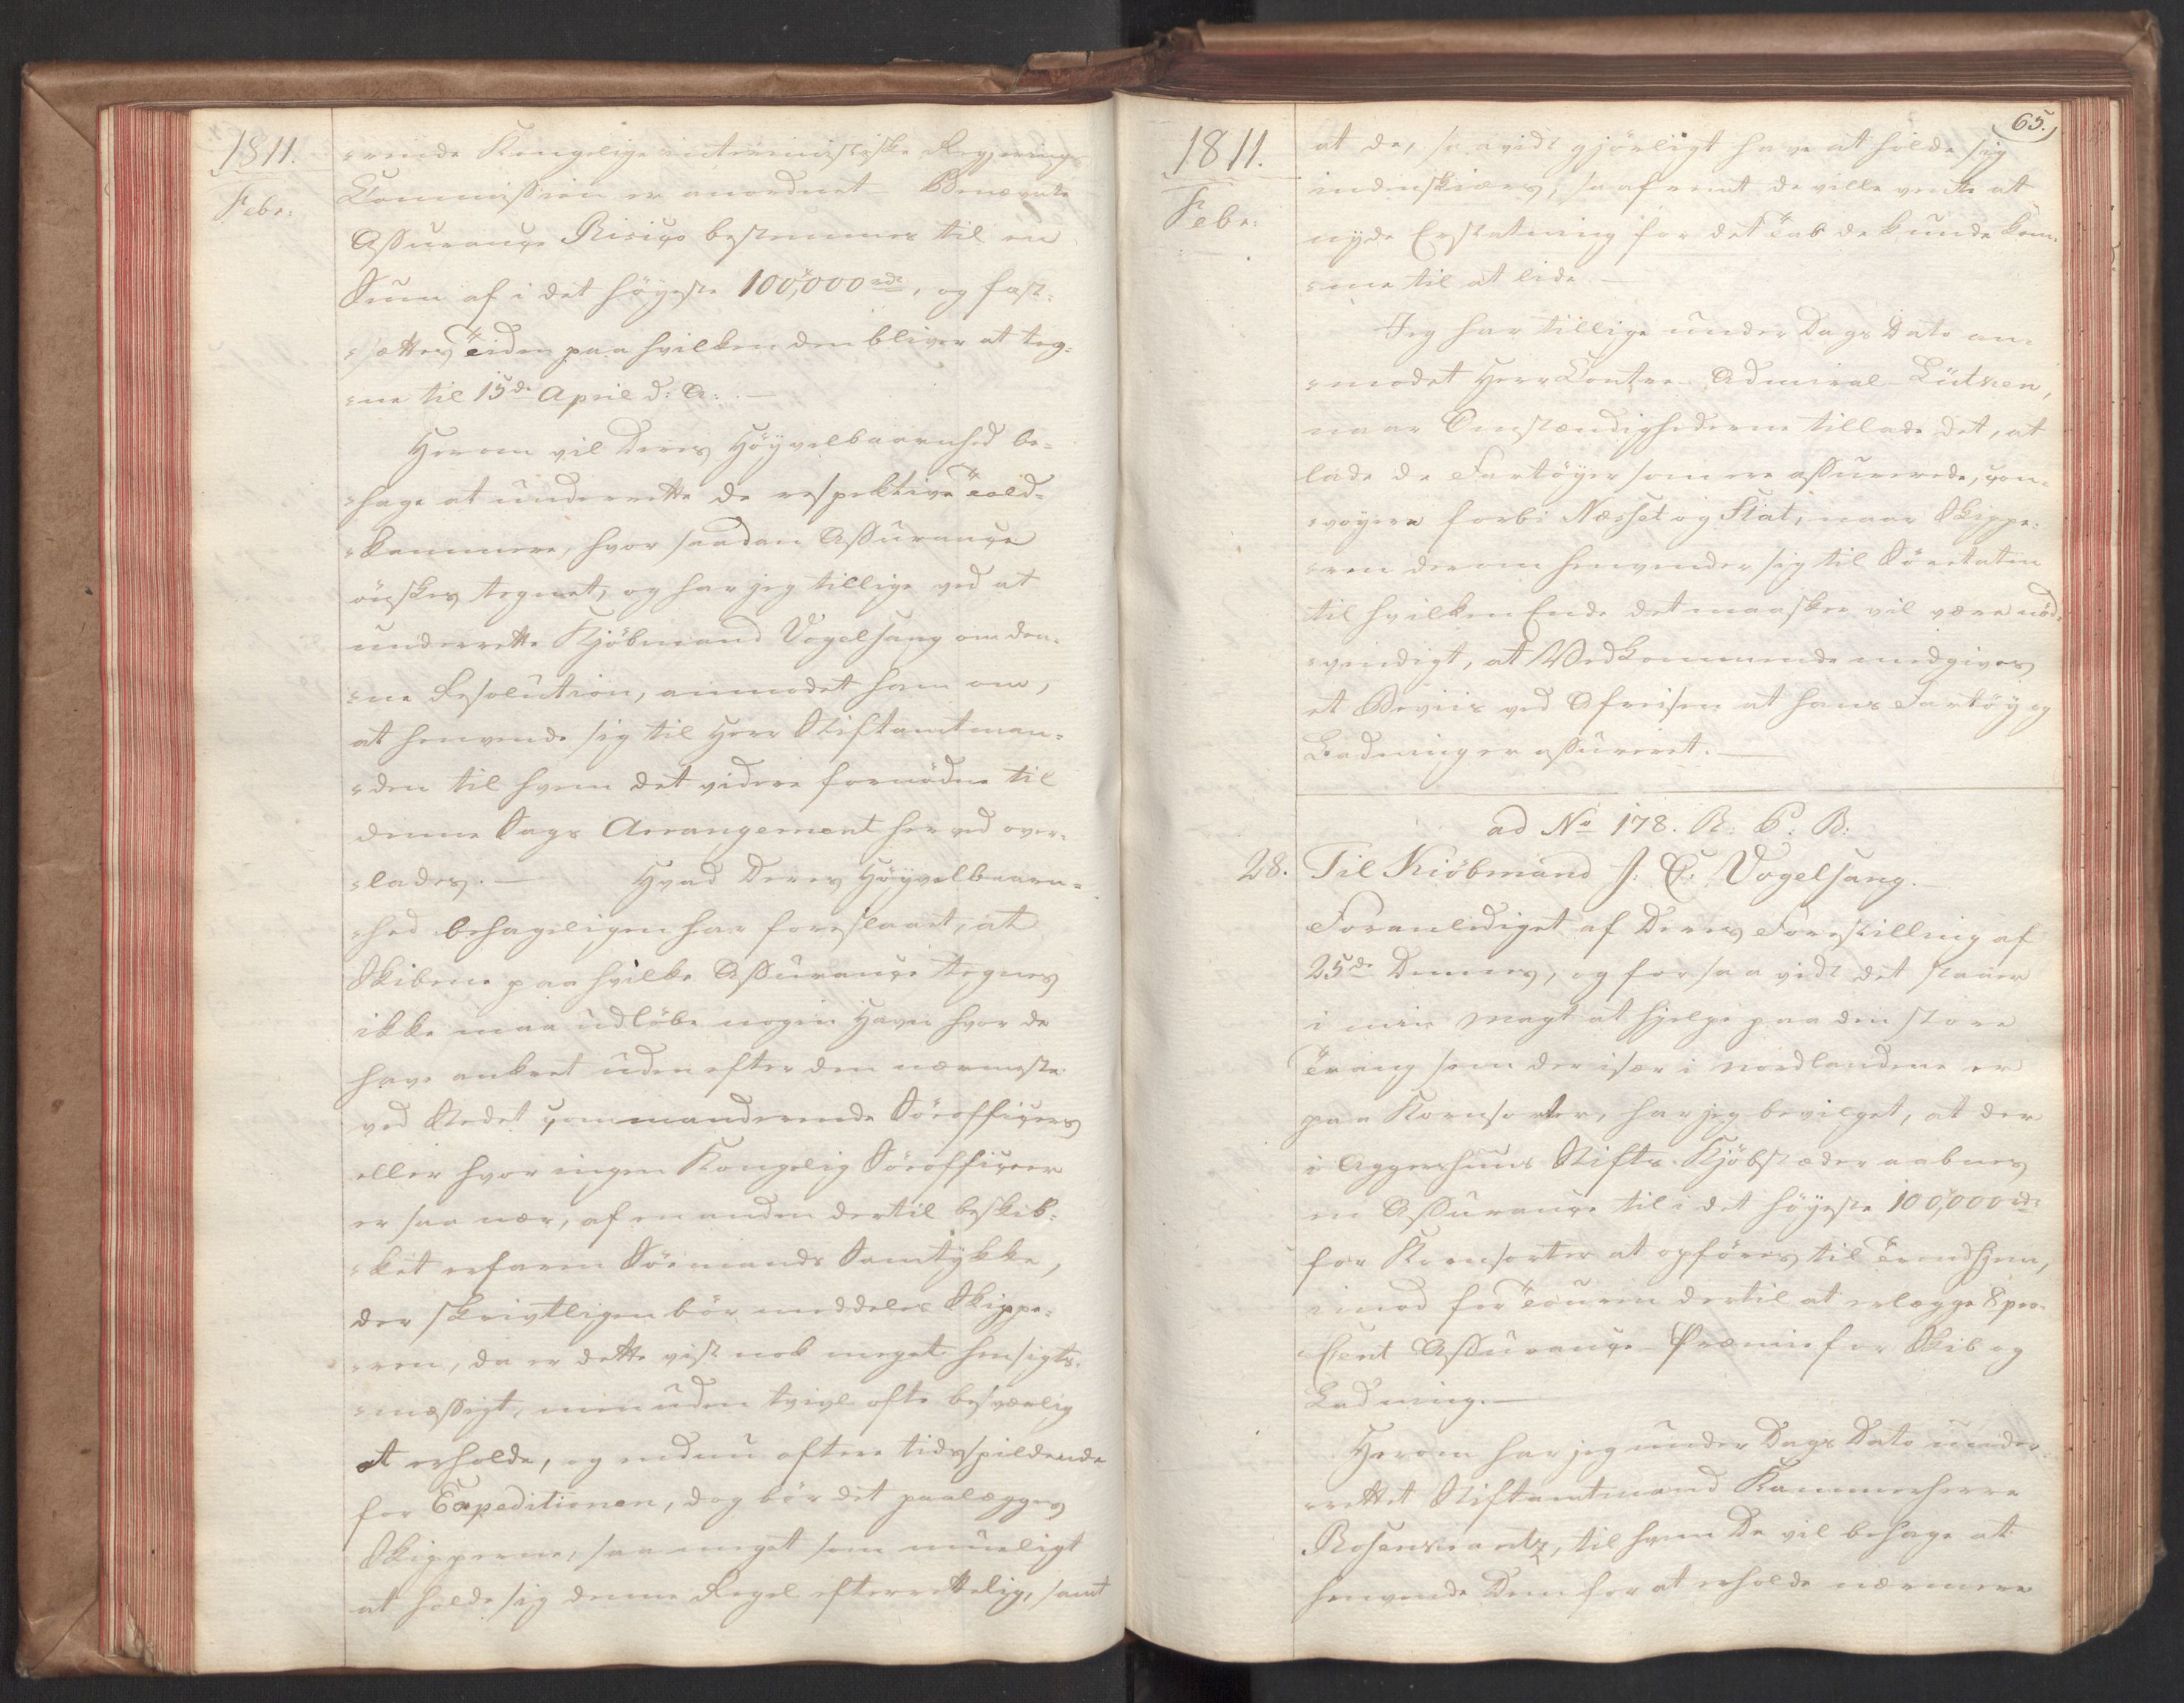 1811.
Febr:
=rende Kongelige interimistiske Regjerings
Commission er anordnet. Benævnte
Assurançe Risiqo bestemmes til en
Sum af i det høyeste 100,000 rdr, og fast=
=sættes Tiden paa hvilken den bliver at teg=
=ne til 15de April d: A:. —
Herom vil Deres Høyvelbaarnhed be=
=hage at underrette de respektive Told=
=kammere, hvor saadan Assurançe
ønskes tegnet, og har jeg tillige ved at
underrette Kjøbmand Vogelsang om den=
=ne Resolution, anmodet ham om,
at henvende sig til Herr Stiftamtman=
=den til hvem det videre fornødne til
denne Sags Arrangement herved over=
=lades. — Hvad Deres Høyvelbaarn=
=hed behageligen har foreslaaet, at
Skibene paa hvilke Assurançe tegnes
ikke maa udløbe nogen Havn hvor de
have ankret uden efter den nærmeste
ved Stedet çommanderende Søeofficers
eller hvor ingen Kongelig Søeofficeer
er saa nær, af en anden dertil beskik=
=ket erfaren Søemands Samtykke,
der skrivtligen bør meddeles Skippe=
=ren, da er dette vist nok meget hensigts=
=mæssigt, men uden tvivl ofte besværlig
at erholde, og endnu oftere tidsspildende
for Expeditionen, dog bør det paalægges
Skipperne, saa meget som mueligt
at holde sig denne Regel efterrettelig, samt
65.
1811.
Febr:
at de, saavidt gjørligt have at holde sig
indenskiærs, saafremt de ville vente at
nyde Erstatning for det Tab de kunde kom=
=me til at lide. —
Jeg har tillige under Dags Dato an=
=modet Herr Contre-Admiral Lütken,
naar Omstændighederne tillade det, at
lade de Fartøyer som ere assurerede, çon=
=voyere forbi Næsset og Stat, naar Skippe=
=ren derom henvender sig til Søeetaten
til hvilken Ende det maaskee vil være nød=
=vendigt, at Vedkommende medgives
et Beviis ved Afreisen at hans Fartøy og
Ladning er assureret. —
ad No 178. R: C: B:
28. Til Kiøbmand J: C: Vogelsang. —
Foranlediget af Deres Forestilling af
25de Dennes, og for saavidt det staaer
i min Magt at hjelpe paa den store
Trang som der især i Nordlandene er
paa Kornsorter, har jeg bevilget, at der
i Aggershuus Stifts Kjøbstæder aabnes
en Assurançe til i det høyeste 100,000 rdr
for Kornsorter at opføres til Trondhjem,
imod for Touren dertil at erlægge 8 pro
Cent Assurançe-Præmie for Skib og
Ladning. —
Herom har jeg under Dags Dato under=
=rettet Stiftamtmand Kammerherre
Rosenkrantz, til hvem De vil behage at
henvende Dem for at erholde nærmere